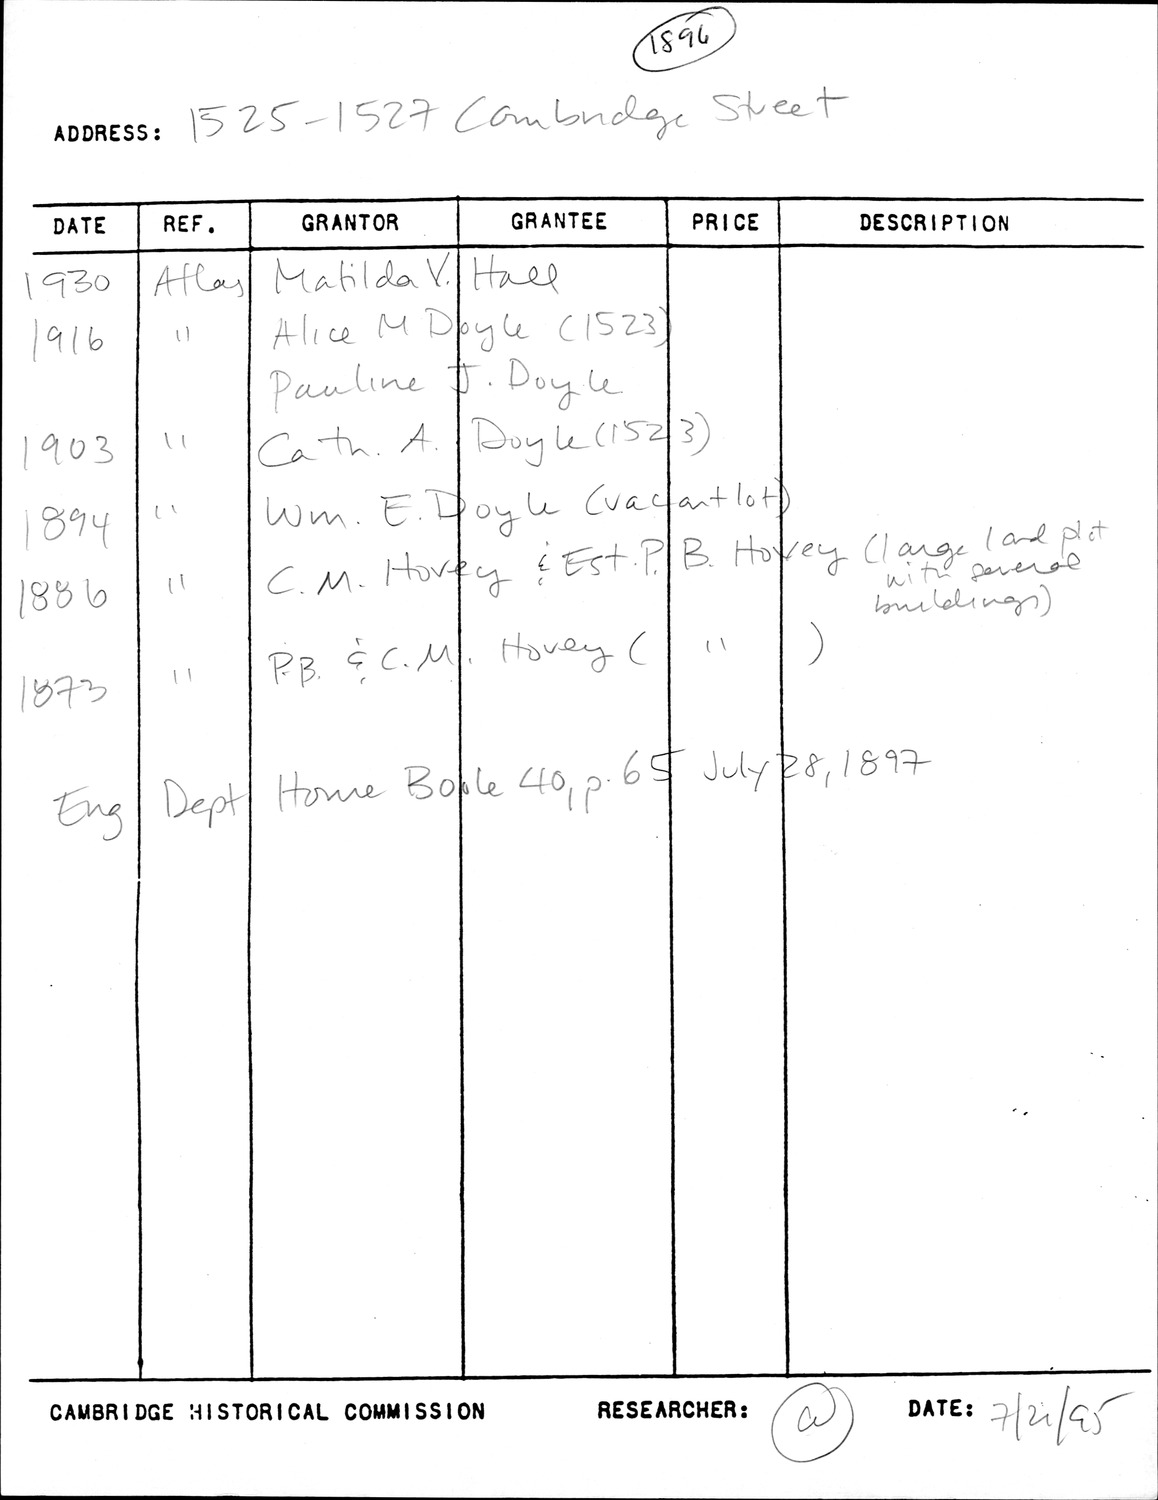 1896
ADDRESS: 1525-1527 Cambridge Street
DATE REF. GRANTOR GRANTEE PRICE DESCRIPTION
1930 Atlas Matilda V. Hall
1916 " Alice M Doyle (1523)
Pauline J. Doyle
1903 " Cath. A. Doyle (1523)
1894 " Wm. E. Doyle (vacant lot)
1886 " C. M. Hovey & Est. P. B. Hovey (large land plot
with several
buildings)
1873 " P.B. & C.M. Hovey ( " )
Eng Dept House Book 40, p. 65 July 28, 1897
CAMBRIDGE HISTORICAL COMMISSION RESEARCHER: DATE: 7/21/95